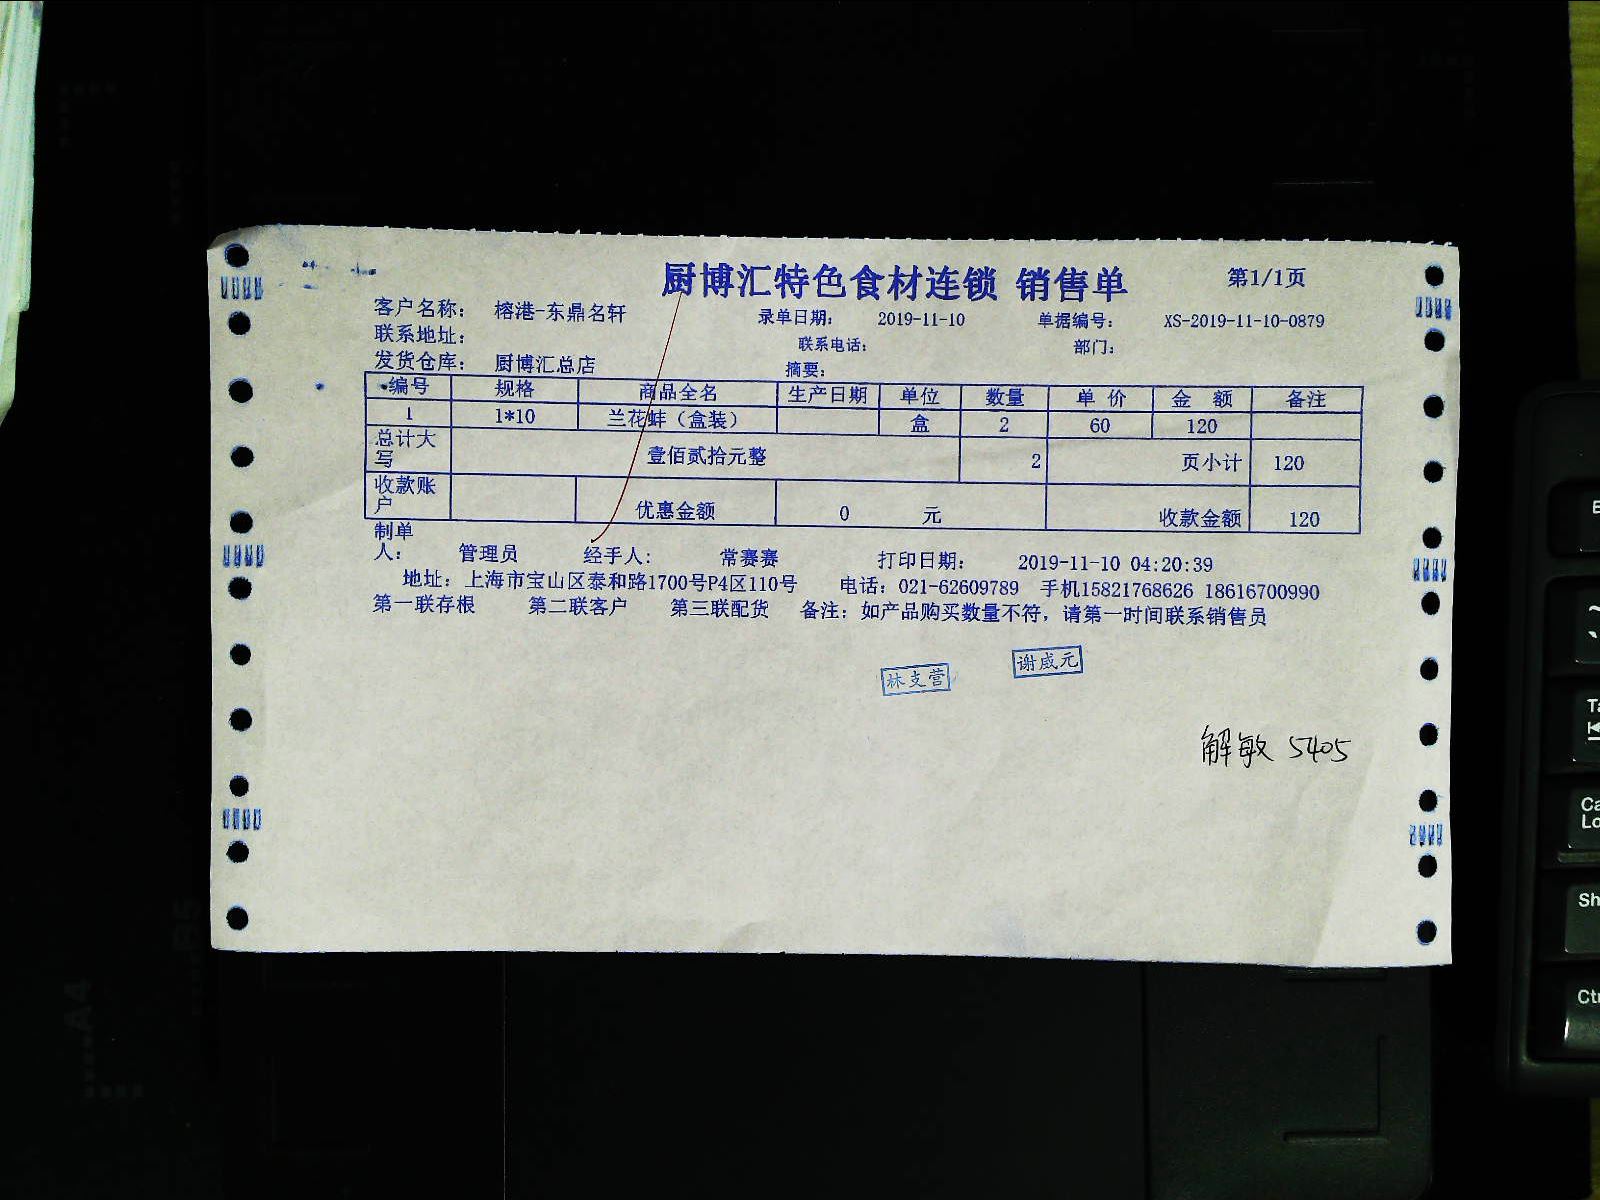 厨博汇特色食材连锁 销售单 第1/1页
客户名称： 榕港-东鼎名轩 录单日期： 2019-11-10 单据编号： XS-2019-11-10-0879
联系地址： 联系电话： 部门：
发货仓库： 厨博汇总店 摘要：
编号 规格 商品全名 生产日期 单位 数量 单 价 金 额 备注
1 1*10 兰花蚌（盒装） 盒 2 60 120
总计大写 壹佰贰拾元整 2 页小计 120
收款账户 优惠金额 0 元 收款金额 120
制单人： 管理员 经手人： 常赛赛 打印日期： 2019-11-10 04:20:39
地址：上海市宝山区泰和路1700号P4区110号 电话：021-62609789 手机15821768626 18616700990
第一联存根 第二联客户 第三联配货 备注：如产品购买数量不符，请第一时间联系销售员
林支营 谢成元
解敏 5405
B5
A4
Ctr